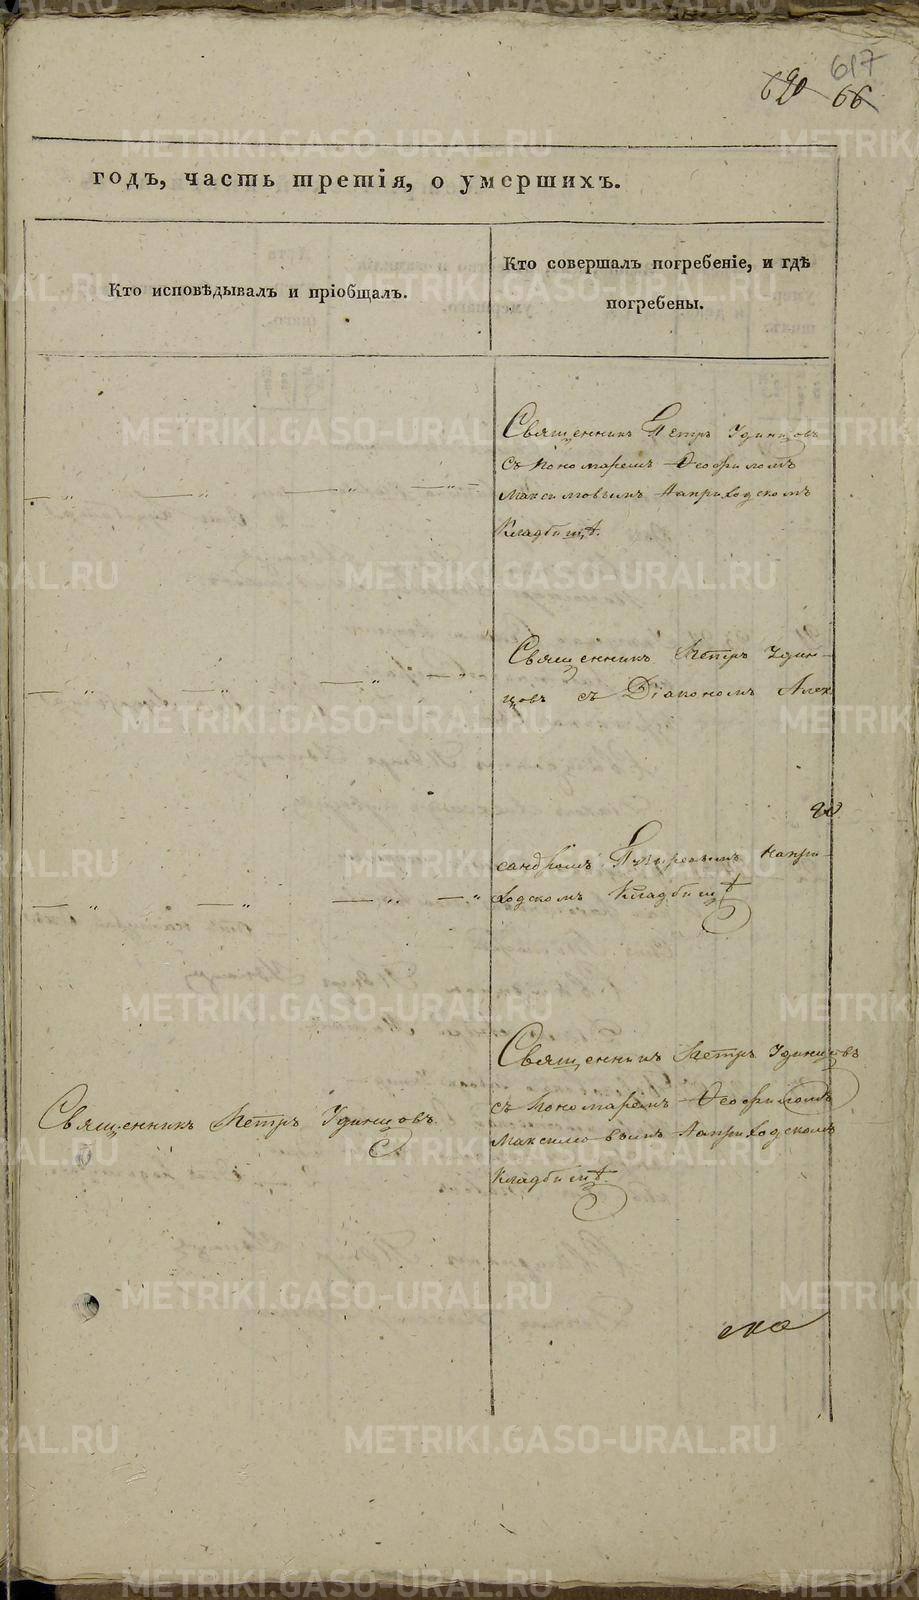 617
620 66
годъ, часть третія, о умершихъ.
Кто исповѣдывалъ и пріобщалъ.
Кто совершалъ погребеніе, и гдѣ
погребены.
Священникъ Петръ Удинцовъ
съ пономаремъ Ѳеофиломъ
Максимовымъ Наприходскомъ
Кладбищѣ.
Священникъ Петръ Удин-
цовъ съ Діакономъ Алек
сандромъ напри-
ходскомъ Кладбищѣ
Священникъ Петръ Удинцовъ
съ Пономаремъ Ѳеофиломъ
Священникъ Петръ Удинцовъ.
Максимовымъ Наприходскомъ
Кладбищѣ.
METRIKI.GASO-URAL.RU